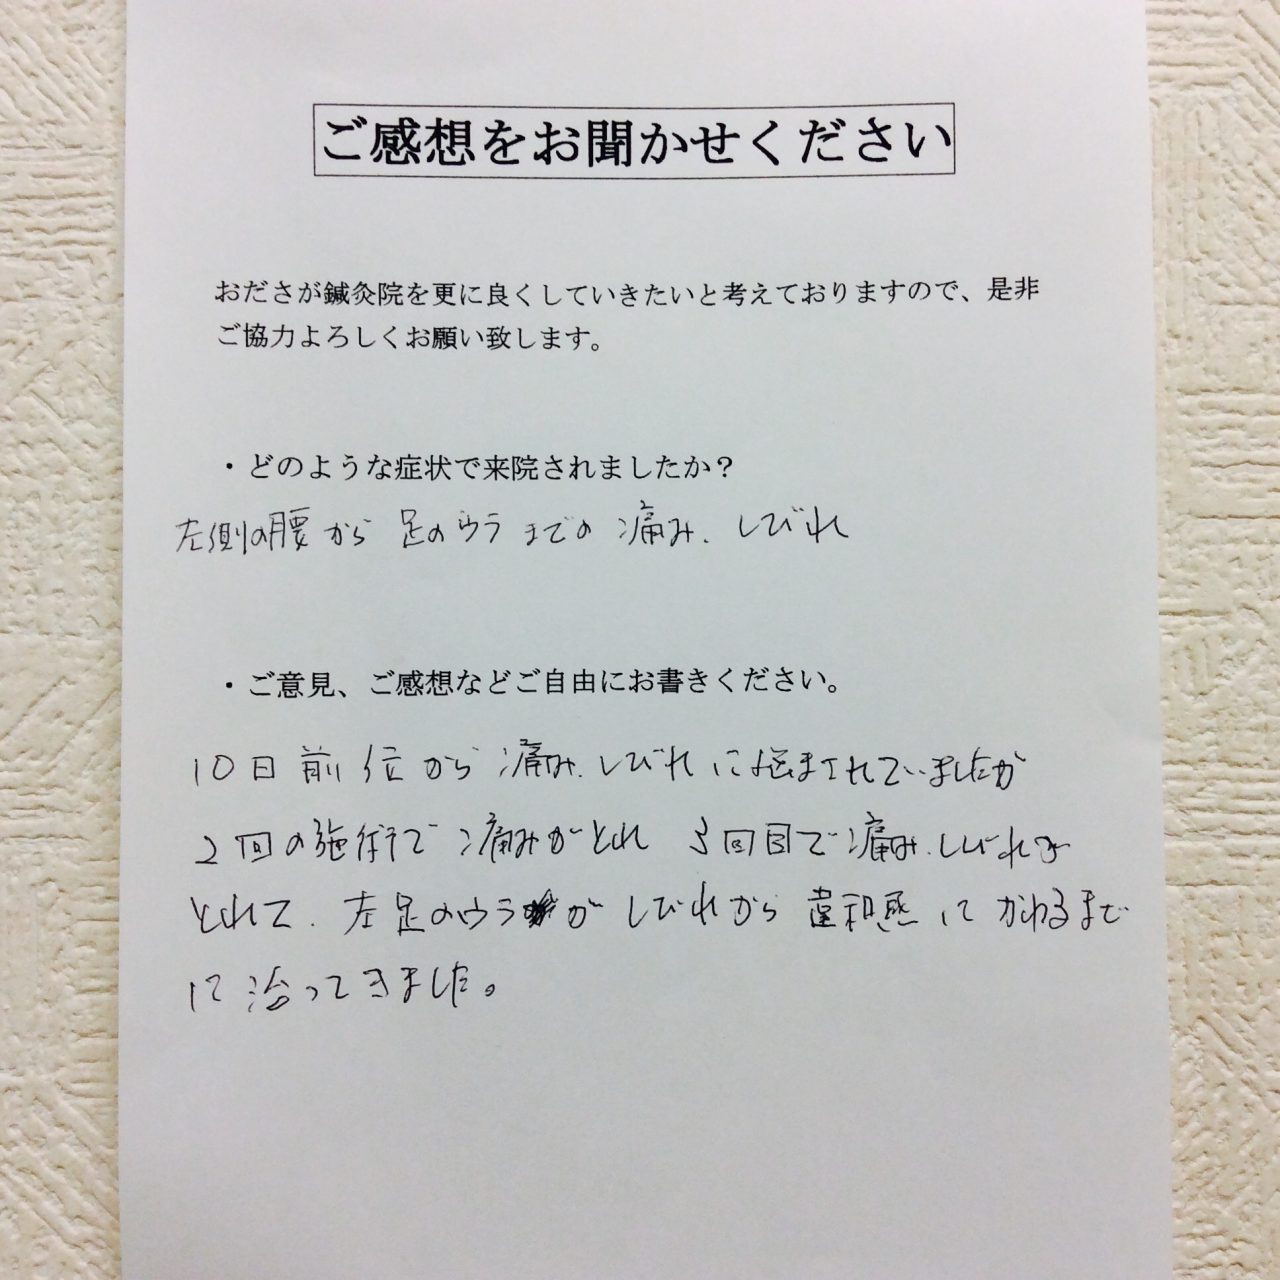 ご感想をお聞かせください
おださが鍼灸院を更に良くしていきたいと考えておりますので、是非
ご協力よろしくお願い致します。
・どのような症状で来院されましたか？
左側の腰から足のウラまでの痛み、しびれ
・ご意見、ご感想などご自由にお書きください。
10日前位から痛み、しびれに悩まされていましたが
2回の施術で痛みがとれ 3回目で痛み、しびれが
とれて、左足のウラがしびれから違和感にかわるまで
に治ってきました。